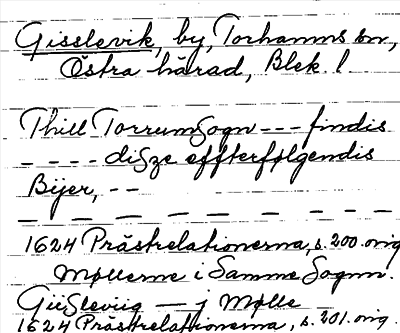 Gisslevik, by, Torhamns sn,
Östra härad, Blek. l.
Thill Torrumsogn --- findis
---- disze effterfølgendis
Bijer, --
— — — — — — — — —
1624 Prästrelationerna, s. 200. orig
Møllerne i Samme Sogn.
Güslevig — j Mølle
1624 Prästrelationerna, s. 201. orig.